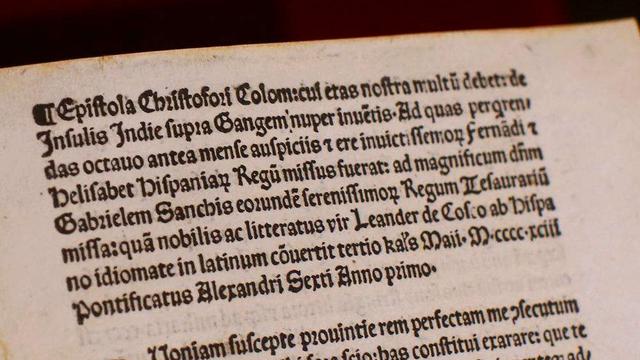 ¶Epistola Christofori Colom: cui etas nostra multū debet: de
Insulis Indie supra Gangem nuper inuētis. Ad quas perqren⸗
das octauo antea mense auspiciis ⁊ ere inuictissemoꝝ Fernādi ⁊
Helisabet Hispaniaꝝ Regū missus fuerat: ad magnificum dn̄m
Gabrielem Sanchis eorundē serenissimoꝝ Regum Tesaurariū
missa: quā nobilis ac litteratus vir Leander de Cosco ab Hispa
no idiomate in latinum cōuertit tertio kal's Maii. M.cccc.xciii
Pontificatus Alexandri Sexti Anno primo.
Uoniam suscepte prouintie rem perfectam me ↄsecutum
has constitui exarare: que te